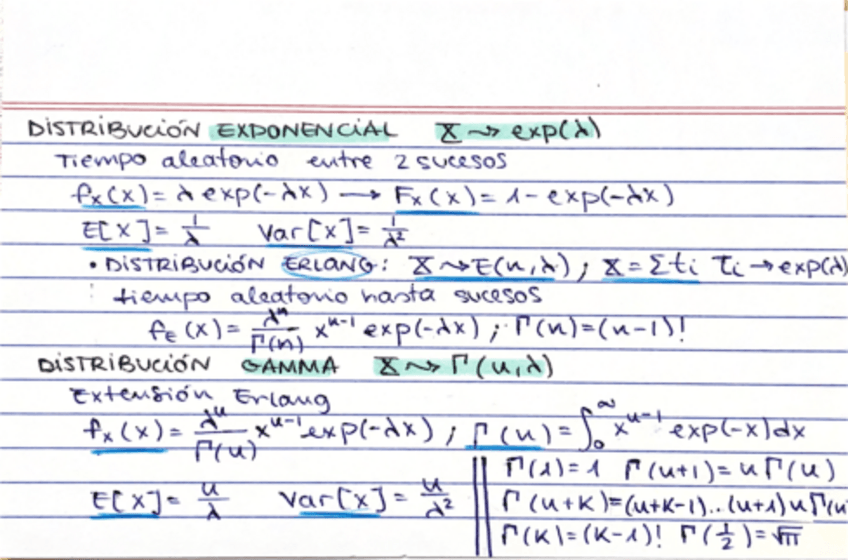 DISTRIBUCIÓN EXPONENCIAL X ⤳ exp(λ)
Tiempo aleatorio entre 2 sucesos
fx(x) = λ exp(-λx) → Fx(x) = 1 - exp(-λx)
E[X] = 1/λ Var[X] = 1/λ²
• DISTRIBUCIÓN ERLANG: X ⤳ E(n,λ) ; X = Σti Ti → exp(λ)
tiempo aleatorio hasta sucesos
fE(x) = λⁿ/Γ(n) xⁿ⁻¹ exp(-λx) ; Γ(n) = (n-1)!
DISTRIBUCIÓN GAMMA X ⤳ Γ(u,λ)
Extensión Erlang
fx(x) = λᵘ/Γ(u) xᵘ⁻¹ exp(-λx) ; Γ(u) = ∫₀^∞ xᵘ⁻¹ exp(-x)dx
Γ(1) = 1 Γ(u+1) = u Γ(u)
E[X] = u/λ Var[X] = u/λ² Γ(u+K) = (u+K-1)...(u+1)u Γ(u
Γ(K) = (K-1)! Γ(1/2) = √π